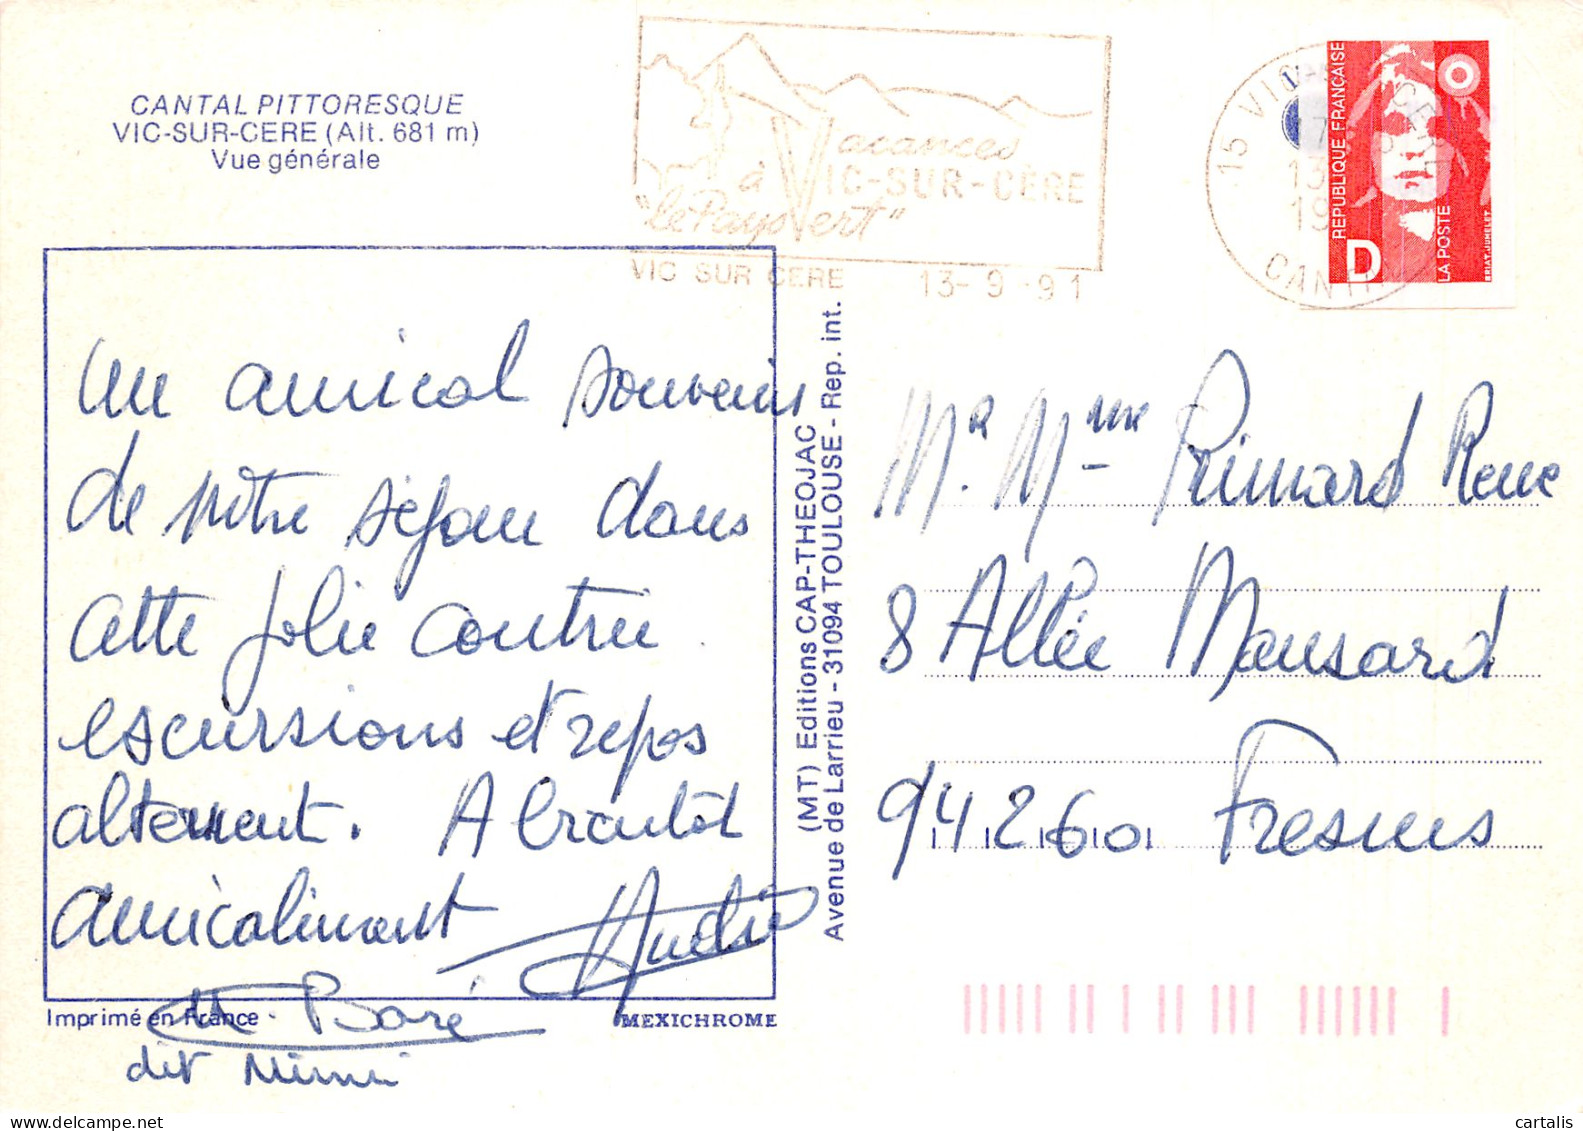 CANTAL PITTORESQUE
VIC-SUR-CERE (Alt. 681 m)
Vue générale
Vacances
à VIC-SUR-CÈRE
"le Pays Vert"
VIC SUR CERE 13-9-91
15 VIC CERE
17
13
19
CANTAL
REPUBLIQUE FRANÇAISE
LA POSTE
D
BRIAT.JUMELET
Un amical souvenir
de notre séjour dans
cette jolie contrée.
escursions et repos
alternent. A bientôt
amicalement
André
Boré
dit Mimi
Imprimé en France
MEXICHROME
(MT) Editions CAP-THEOJAC
Avenue de Larrieu - 31094 TOULOUSE - Rep. int.
M. Mme Primard René
8 Allée Mansard
94260 Fresnes
cartalis